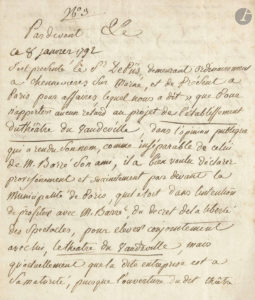 N.º 3
Pardevant &c
ce 8 janvier 1792
S'est présenté le S.r DePiis, demeurant ordinairement
à Chennevieres sur Marne, et de présent à
Paris pour affaires lequel nous a dit que pour
n'apporter aucun retard au projet de l'etablissement
du théatre du Vaudeville, dans l'opinion publique
qui a rendu son nom, comme inséparable de celui
de M. Barré son ami, il a bien voulu déclarer
provisoirement et par devant la
Municipalité de Paris, qu'etant dans l'intention
de profiter avec M. Barré du decret de la liberté
des Spectacles, pour elever conjointement
avec lui, le théatre du Vaudeville mais
qu'actuellement que la dite entreprise est à
sa maturité, puisque l'ouverture du dit théatre